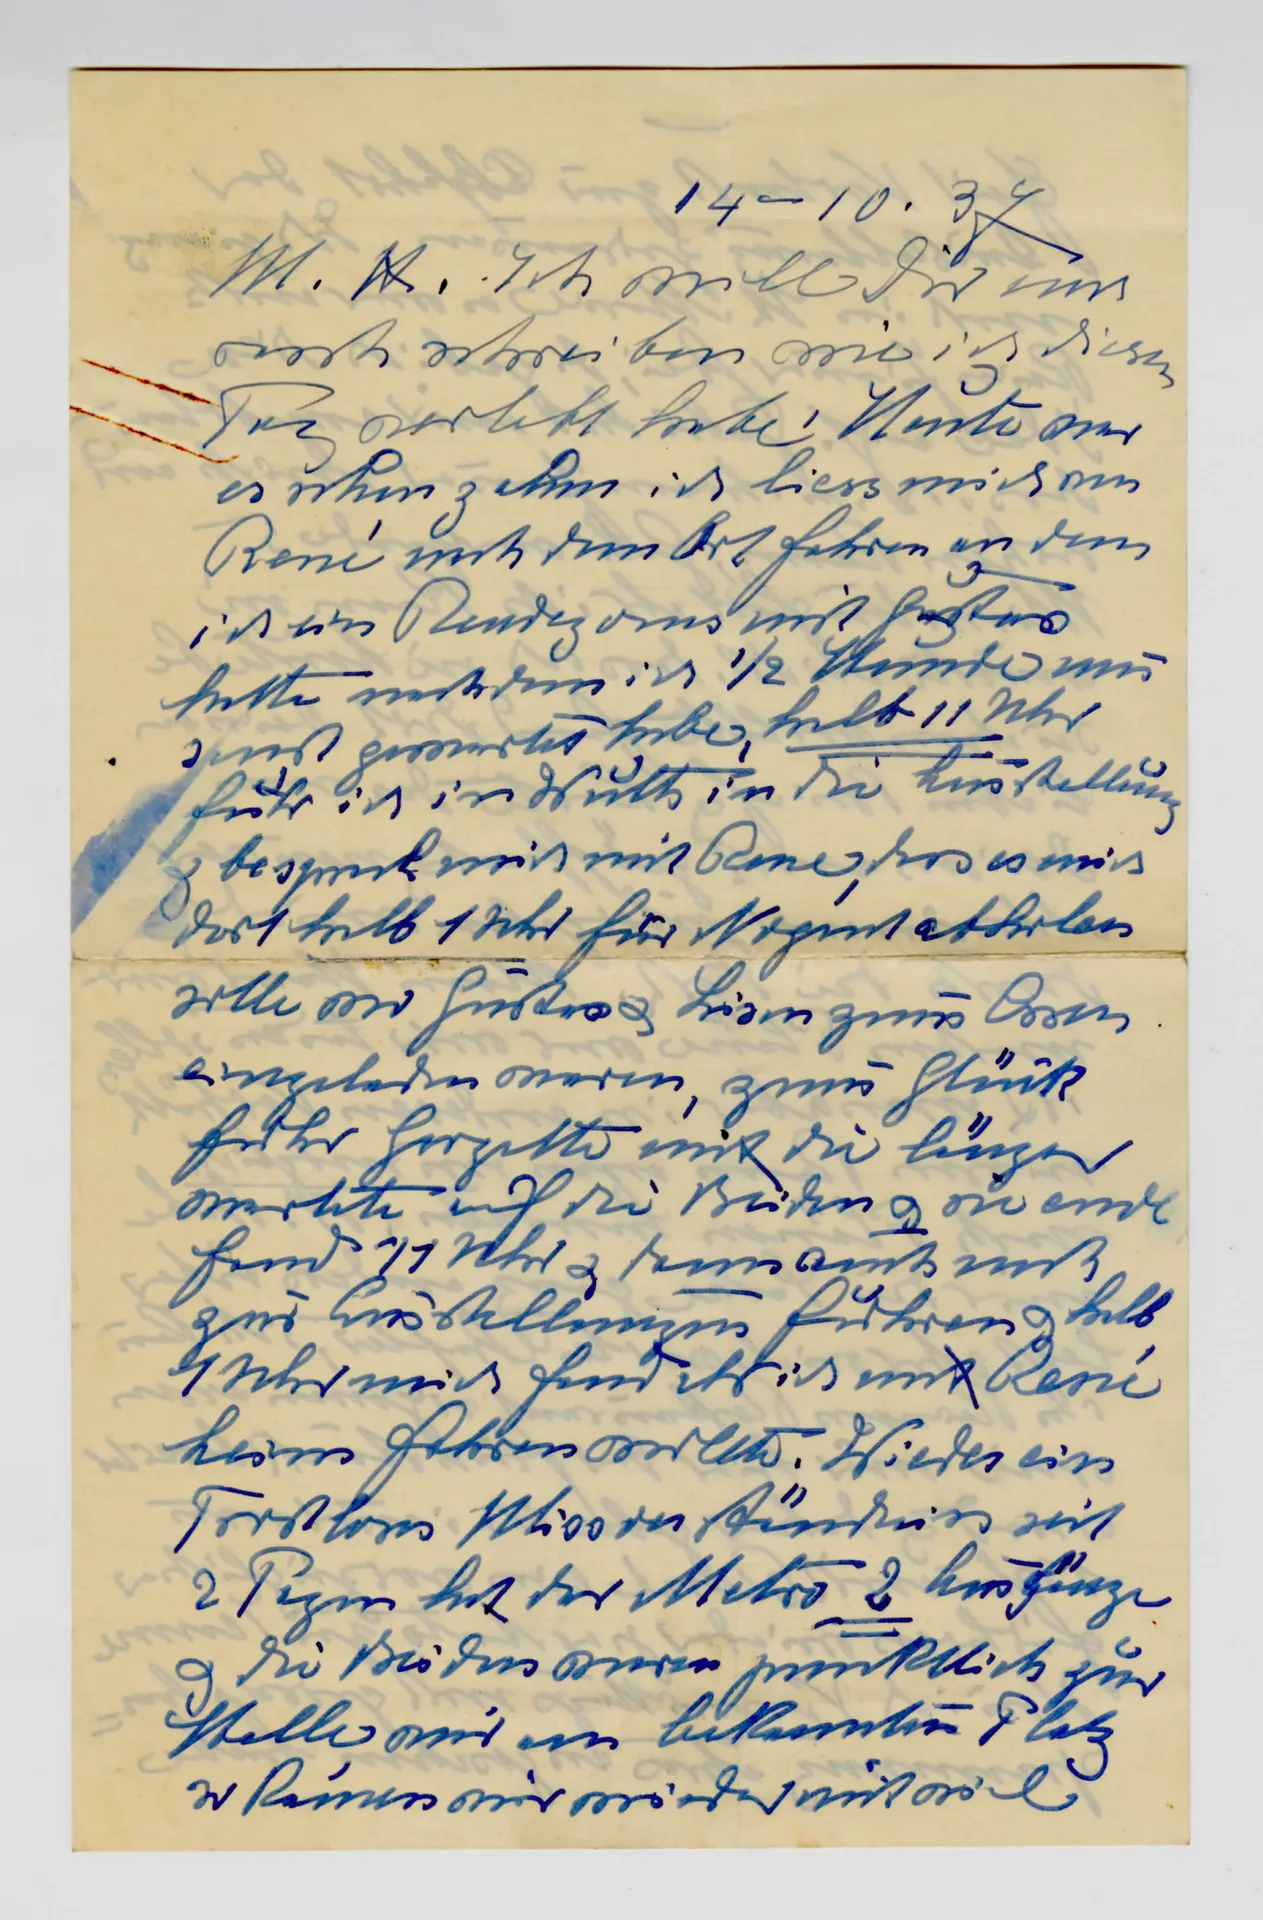 14-10.37
M. H. Ich will Dir nur
noch schreiben wie ich diesen
Tag verlebt habe! Heute war
es schon zehn ich liess mich von
René nach dem Ort fahren an dem
ich ein Rendezvous mit Gustav
hatte nachdem ich 1/2 Stunde
gewartet habe, halb 11 Uhr
fuhr ich in Wuth in die Ausstellung
& besprach mich mit Rene, dass es mich
dort halb 1 Uhr für Nogent abholen
solle wo Gustav & zum Essen
eingeladen waren, zum Glück
fuhr die länger
wartete auf die Beiden & sie
fand 11 Uhr & dann auch nach
zur Ausstellung fuhren & halb
1 Uhr mich fand als ich mit René
heim fahren wollte. Wieder ein
Trostloses Missverständniss seit
2 Tagen hat der Metro 2 Ausgänge
& die Beiden waren pünktlich zur
Stelle nur am bekannten Platz
so kamen wir wieder mit viel